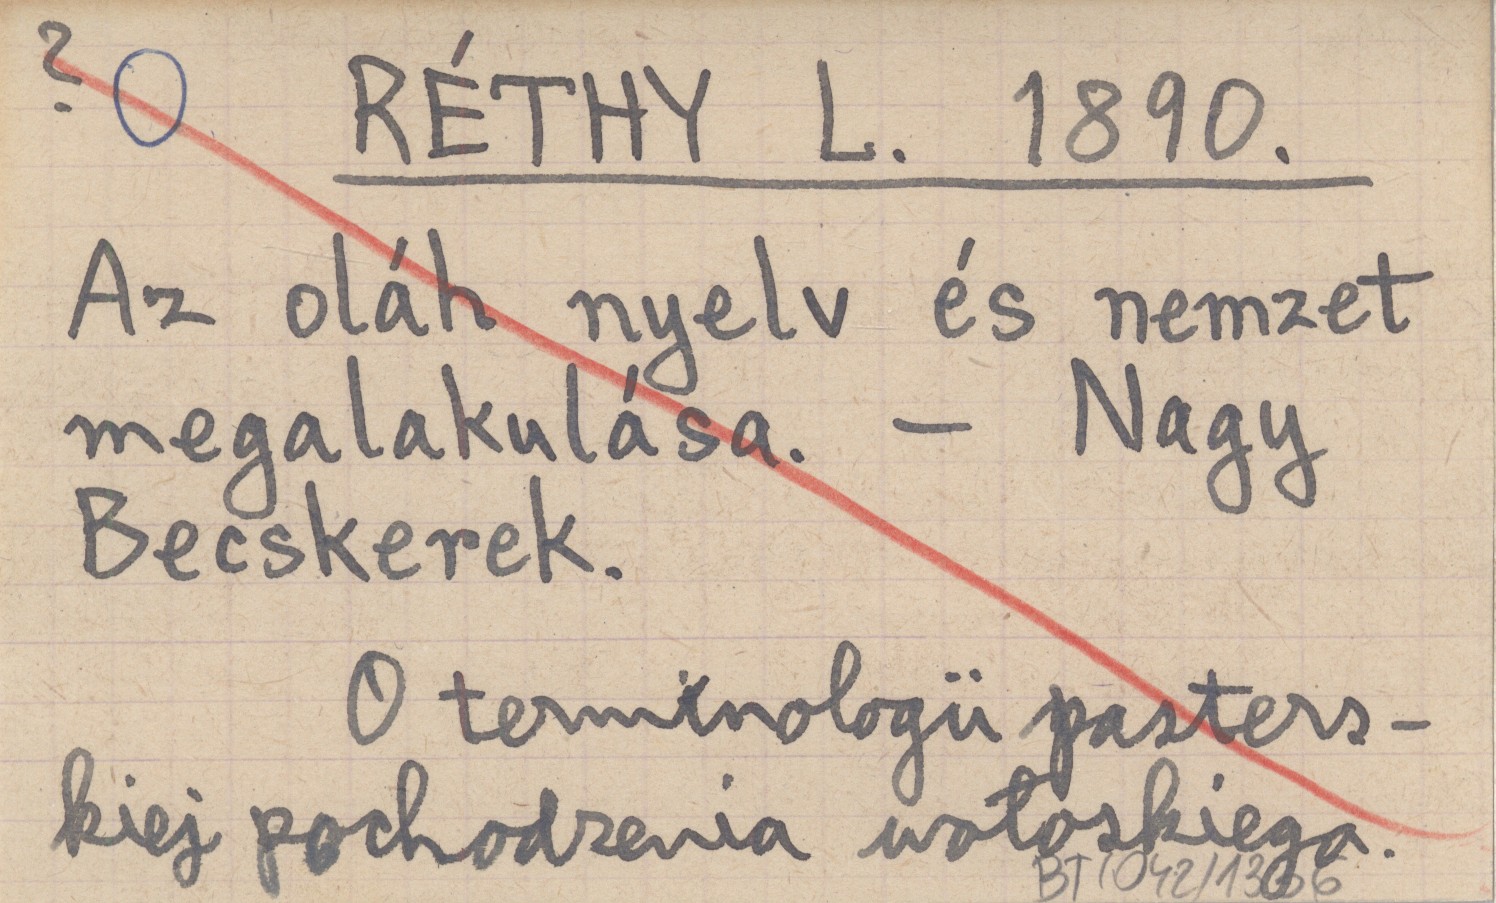 ?
RÉTHY L. 1890.
Az oláh nyelv és nemzet
megalakulása. – Nagy
Becskerek.
O terminologii pasters-
kiej pochodzenia wołoskiego.